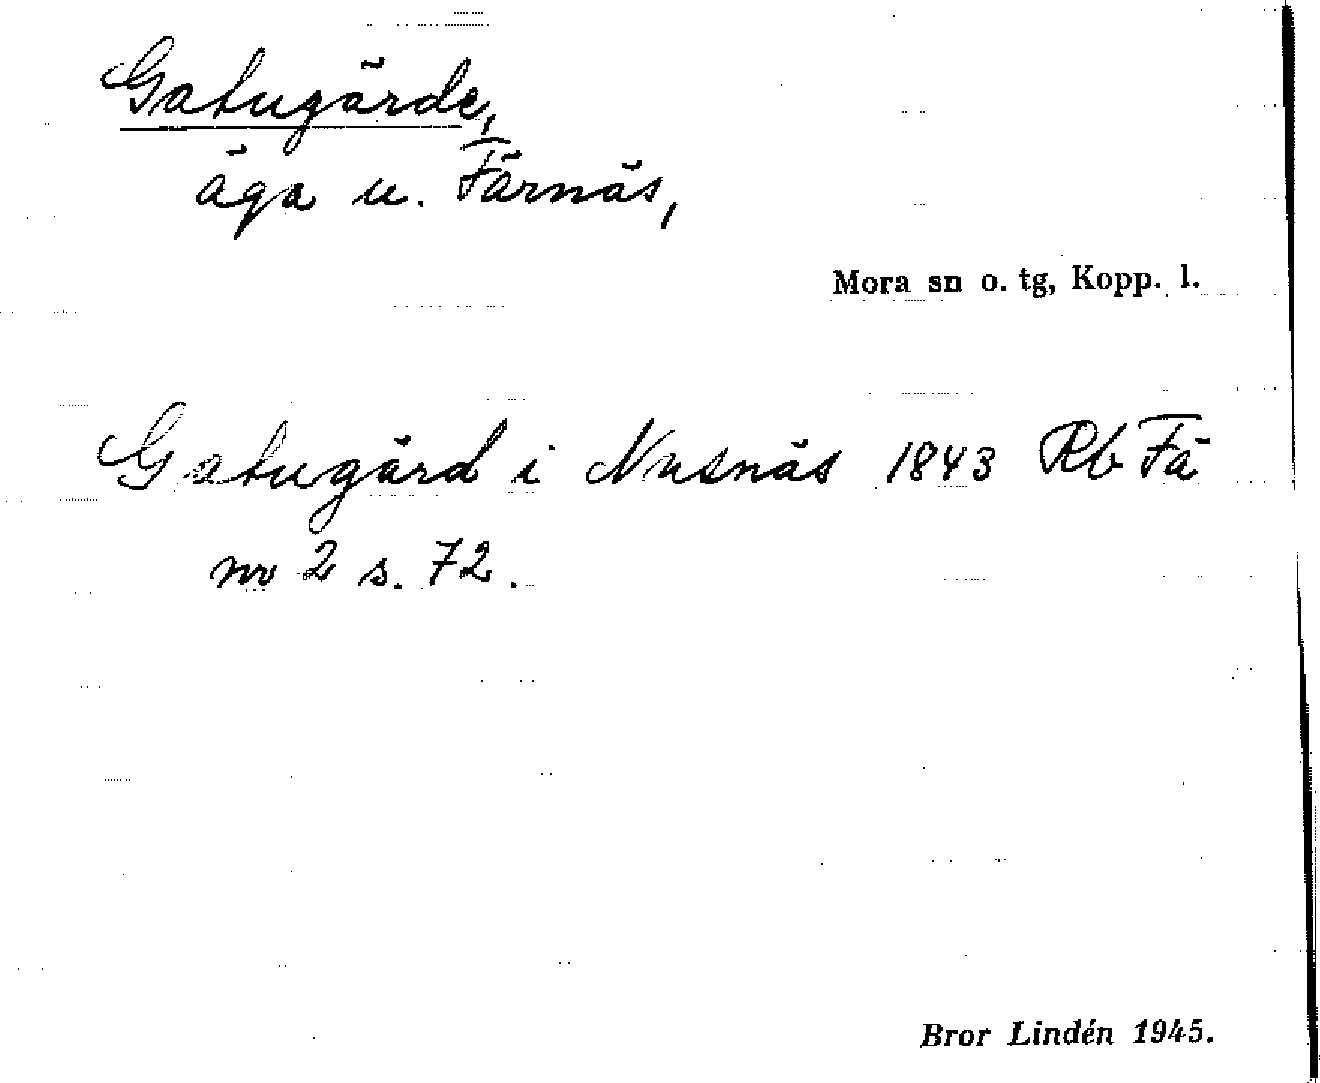 Gatugärde,
äga u. Färnäs,
Mora sn o. tg, Kopp. l.
Gatugärd i Nusnäs 1843 Rb Fä
nr 2 s. 72.
Bror Lindén 1945.